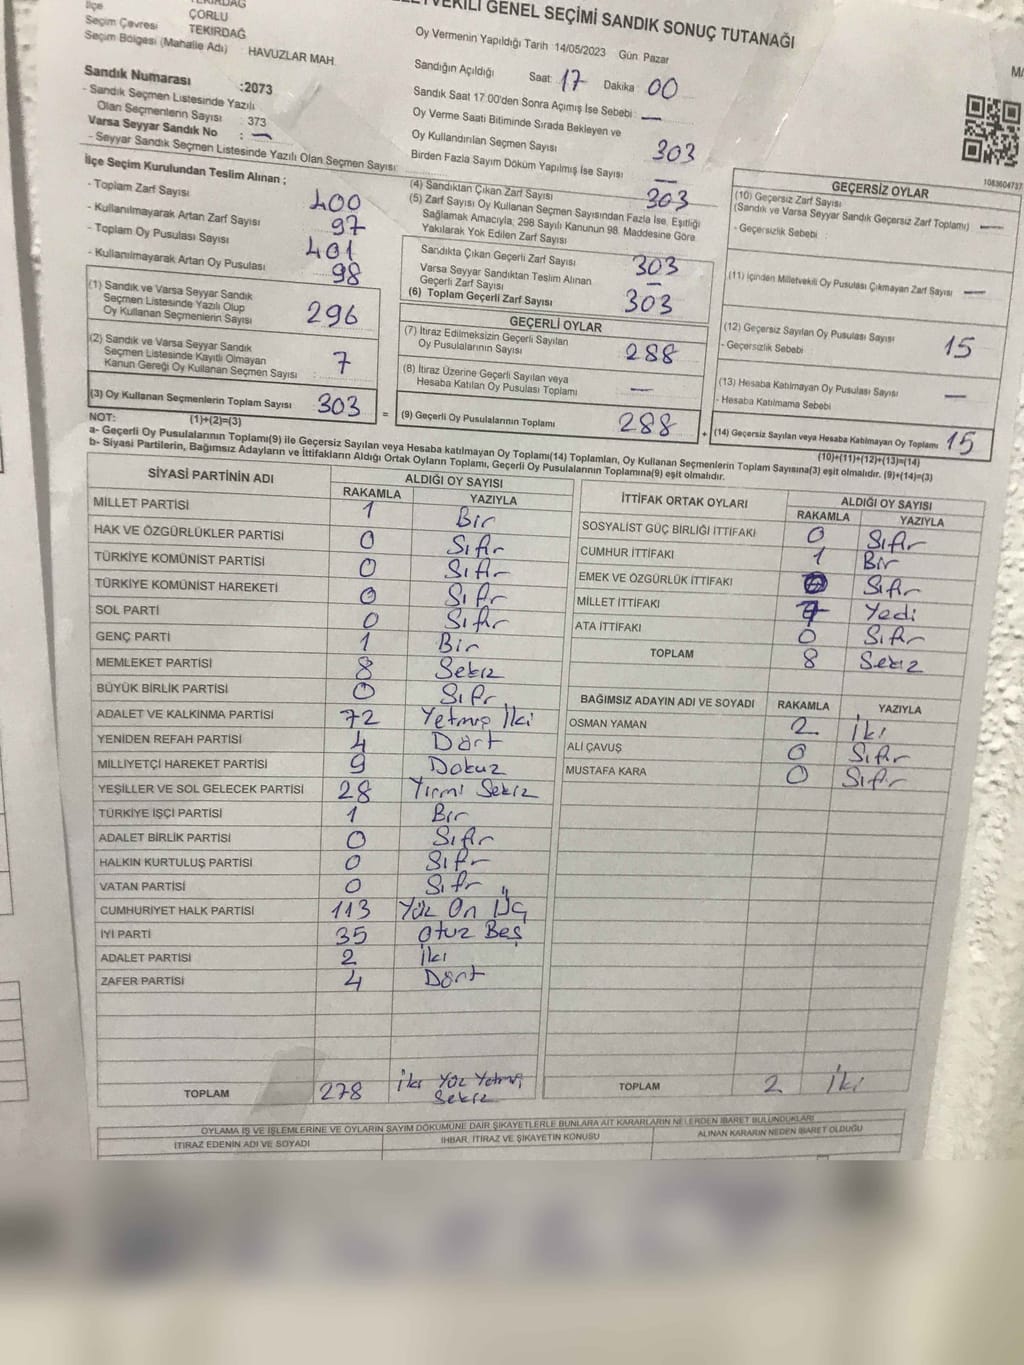 İlçe
TEKİRDAĞ
ÇORLU
Seçim Çevresi
TEKİRDAĞ
Seçim Bölgesi (Mahalle Adı) : HAVUZLAR MAH.
GENEL SEÇİMİ SANDIK SONUÇ TUTANAĞI
Oy Vermenin Yapıldığı Tarih 14/05/2023 Gün Pazar
Sandığın Açıldığı Saat: 17 Dakika 00
Sandık Saat 17:00'den Sonra Açımış İse Sebebi : —
Oy Verme Saati Bitiminde Sırada Bekleyen ve
Oy Kullandırılan Seçmen Sayısı 303
Birden Fazla Sayım Döküm Yapılmış İse Sayısı —
Sandık Numarası :2073
- Sandık Seçmen Listesinde Yazılı
Olan Seçmenlerin Sayısı : 373
Varsa Seyyar Sandık No : —
- Seyyar Sandık Seçmen Listesinde Yazılı Olan Seçmen Sayısı:
İlçe Seçim Kurulundan Teslim Alınan ;
- Toplam Zarf Sayısı 400
- Kullanılmayarak Artan Zarf Sayısı 97
- Toplam Oy Pusulası Sayısı 401
- Kullanılmayarak Artan Oy Pusulası 98
(1) Sandık ve Varsa Seyyar Sandık
Seçmen Listesinde Yazılı Olup
Oy Kullanan Seçmenlerin Sayısı 296
(2) Sandık ve Varsa Seyyar Sandık
Seçmen Listesinde Kayıtlı Olmayan
Kanun Gereği Oy Kullanan Seçmen Sayısı : 7
(3) Oy Kullanan Seçmenlerin Toplam Sayısı 303 =
(1)+(2)=(3)
(4) Sandıktan Çıkan Zarf Sayısı 303
(5) Zarf Sayısı Oy Kullanan Seçmen Sayısından Fazla İse, Eşitliği
Sağlamak Amacıyla; 298 Sayılı Kanunun 98. Maddesine Göre
Yakılarak Yok Edilen Zarf Sayısı
Sandıkta Çıkan Geçerli Zarf Sayısı 303
Varsa Seyyar Sandıktan Teslim Alınan
Geçerli Zarf Sayısı —
(6) Toplam Geçerli Zarf Sayısı 303
GEÇERLİ OYLAR
(7) İtiraz Edilmeksizin Geçerli Sayılan
Oy Pusulalarının Sayısı 288
(8) İtiraz Üzerine Geçerli Sayılan veya
Hesaba Katılan Oy Pusulası Toplamı —
(9) Geçerli Oy Pusulalarının Toplamı 288 +
1083604737
GEÇERSİZ OYLAR
(10) Geçersiz Zarf Sayısı
(Sandık ve Varsa Seyyar Sandık Geçersiz Zarf Toplamı) —
- Geçersizlik Sebebi :
(11) İçinden Milletvekili Oy Pusulası Çıkmayan Zarf Sayısı —
(12) Geçersiz Sayılan Oy Pusulası Sayısı 15
- Geçersizlik Sebebi
(13) Hesaba Katılmayan Oy Pusulası Sayısı —
- Hesaba Katılmama Sebebi
(14) Geçersiz Sayılan veya Hesaba Katılmayan Oy Toplamı 15
(10)+(11)+(12)+(13)=(14)
NOT:
a- Geçerli Oy Pusulalarının Toplamı(9) ile Geçersiz Sayılan veya Hesaba katılmayan Oy Toplamı(14) Toplamları, Oy Kullanan Seçmenlerin Toplam Sayısına(3) eşit olmalıdır. (9)+(14)=(3)
b- Siyasi Partilerin, Bağımsız Adayların ve İttifakların Aldığı Ortak Oyların Toplamı, Geçerli Oy Pusulalarının Toplamına(9) eşit olmalıdır.
SİYASİ PARTİNİN ADI ALDIĞI OY SAYISI
RAKAMLA YAZIYLA
MİLLET PARTİSİ 1 Bir
HAK VE ÖZGÜRLÜKLER PARTİSİ 0 Sıfır
TÜRKİYE KOMÜNİST PARTİSİ 0 Sıfır
TÜRKİYE KOMÜNİST HAREKETİ 0 Sıfır
SOL PARTİ 0 Sıfır
GENÇ PARTİ 1 Bir
MEMLEKET PARTİSİ 8 Sekiz
BÜYÜK BİRLİK PARTİSİ 0 Sıfır
ADALET VE KALKINMA PARTİSİ 72 Yetmiş İki
YENİDEN REFAH PARTİSİ 4 Dört
MİLLİYETÇİ HAREKET PARTİSİ 9 Dokuz
YEŞİLLER VE SOL GELECEK PARTİSİ 28 Yirmi Sekiz
TÜRKİYE İŞÇİ PARTİSİ 1 Bir
ADALET BİRLİK PARTİSİ 0 Sıfır
HALKIN KURTULUŞ PARTİSİ 0 Sıfır
VATAN PARTİSİ 0 Sıfır
CUMHURİYET HALK PARTİSİ 113 Yüz On Üç
İYİ PARTİ 35 Otuz Beş
ADALET PARTİSİ 2 İki
ZAFER PARTİSİ 4 Dört
TOPLAM 278 İki Yüz Yetmiş
Sekiz
İTTİFAK ORTAK OYLARI ALDIĞI OY SAYISI
RAKAMLA YAZIYLA
SOSYALİST GÜÇ BİRLİĞİ İTTİFAKI 0 Sıfır
CUMHUR İTTİFAKI 1 Bir
EMEK VE ÖZGÜRLÜK İTTİFAKI 0 Sıfır
MİLLET İTTİFAKI 7 Yedi
ATA İTTİFAKI 0 Sıfır
TOPLAM 8 Sekiz
BAĞIMSIZ ADAYIN ADI VE SOYADI RAKAMLA YAZIYLA
OSMAN YAMAN 2 İki
ALİ ÇAVUŞ 0 Sıfır
MUSTAFA KARA 0 Sıfır
TOPLAM 2 İki
OYLAMA İŞ VE İŞLEMLERİNE VE OYLARIN SAYIM DÖKÜMÜNE DAİR ŞİKAYETLERLE BUNLARA AİT KARARLARIN NELERDEN İBARET BULUNDUKLARI
İTİRAZ EDENİN ADI VE SOYADI İHBAR, İTİRAZ VE ŞİKAYETİN KONUSU ALINAN KARARIN NEDEN İBARET OLDUĞU